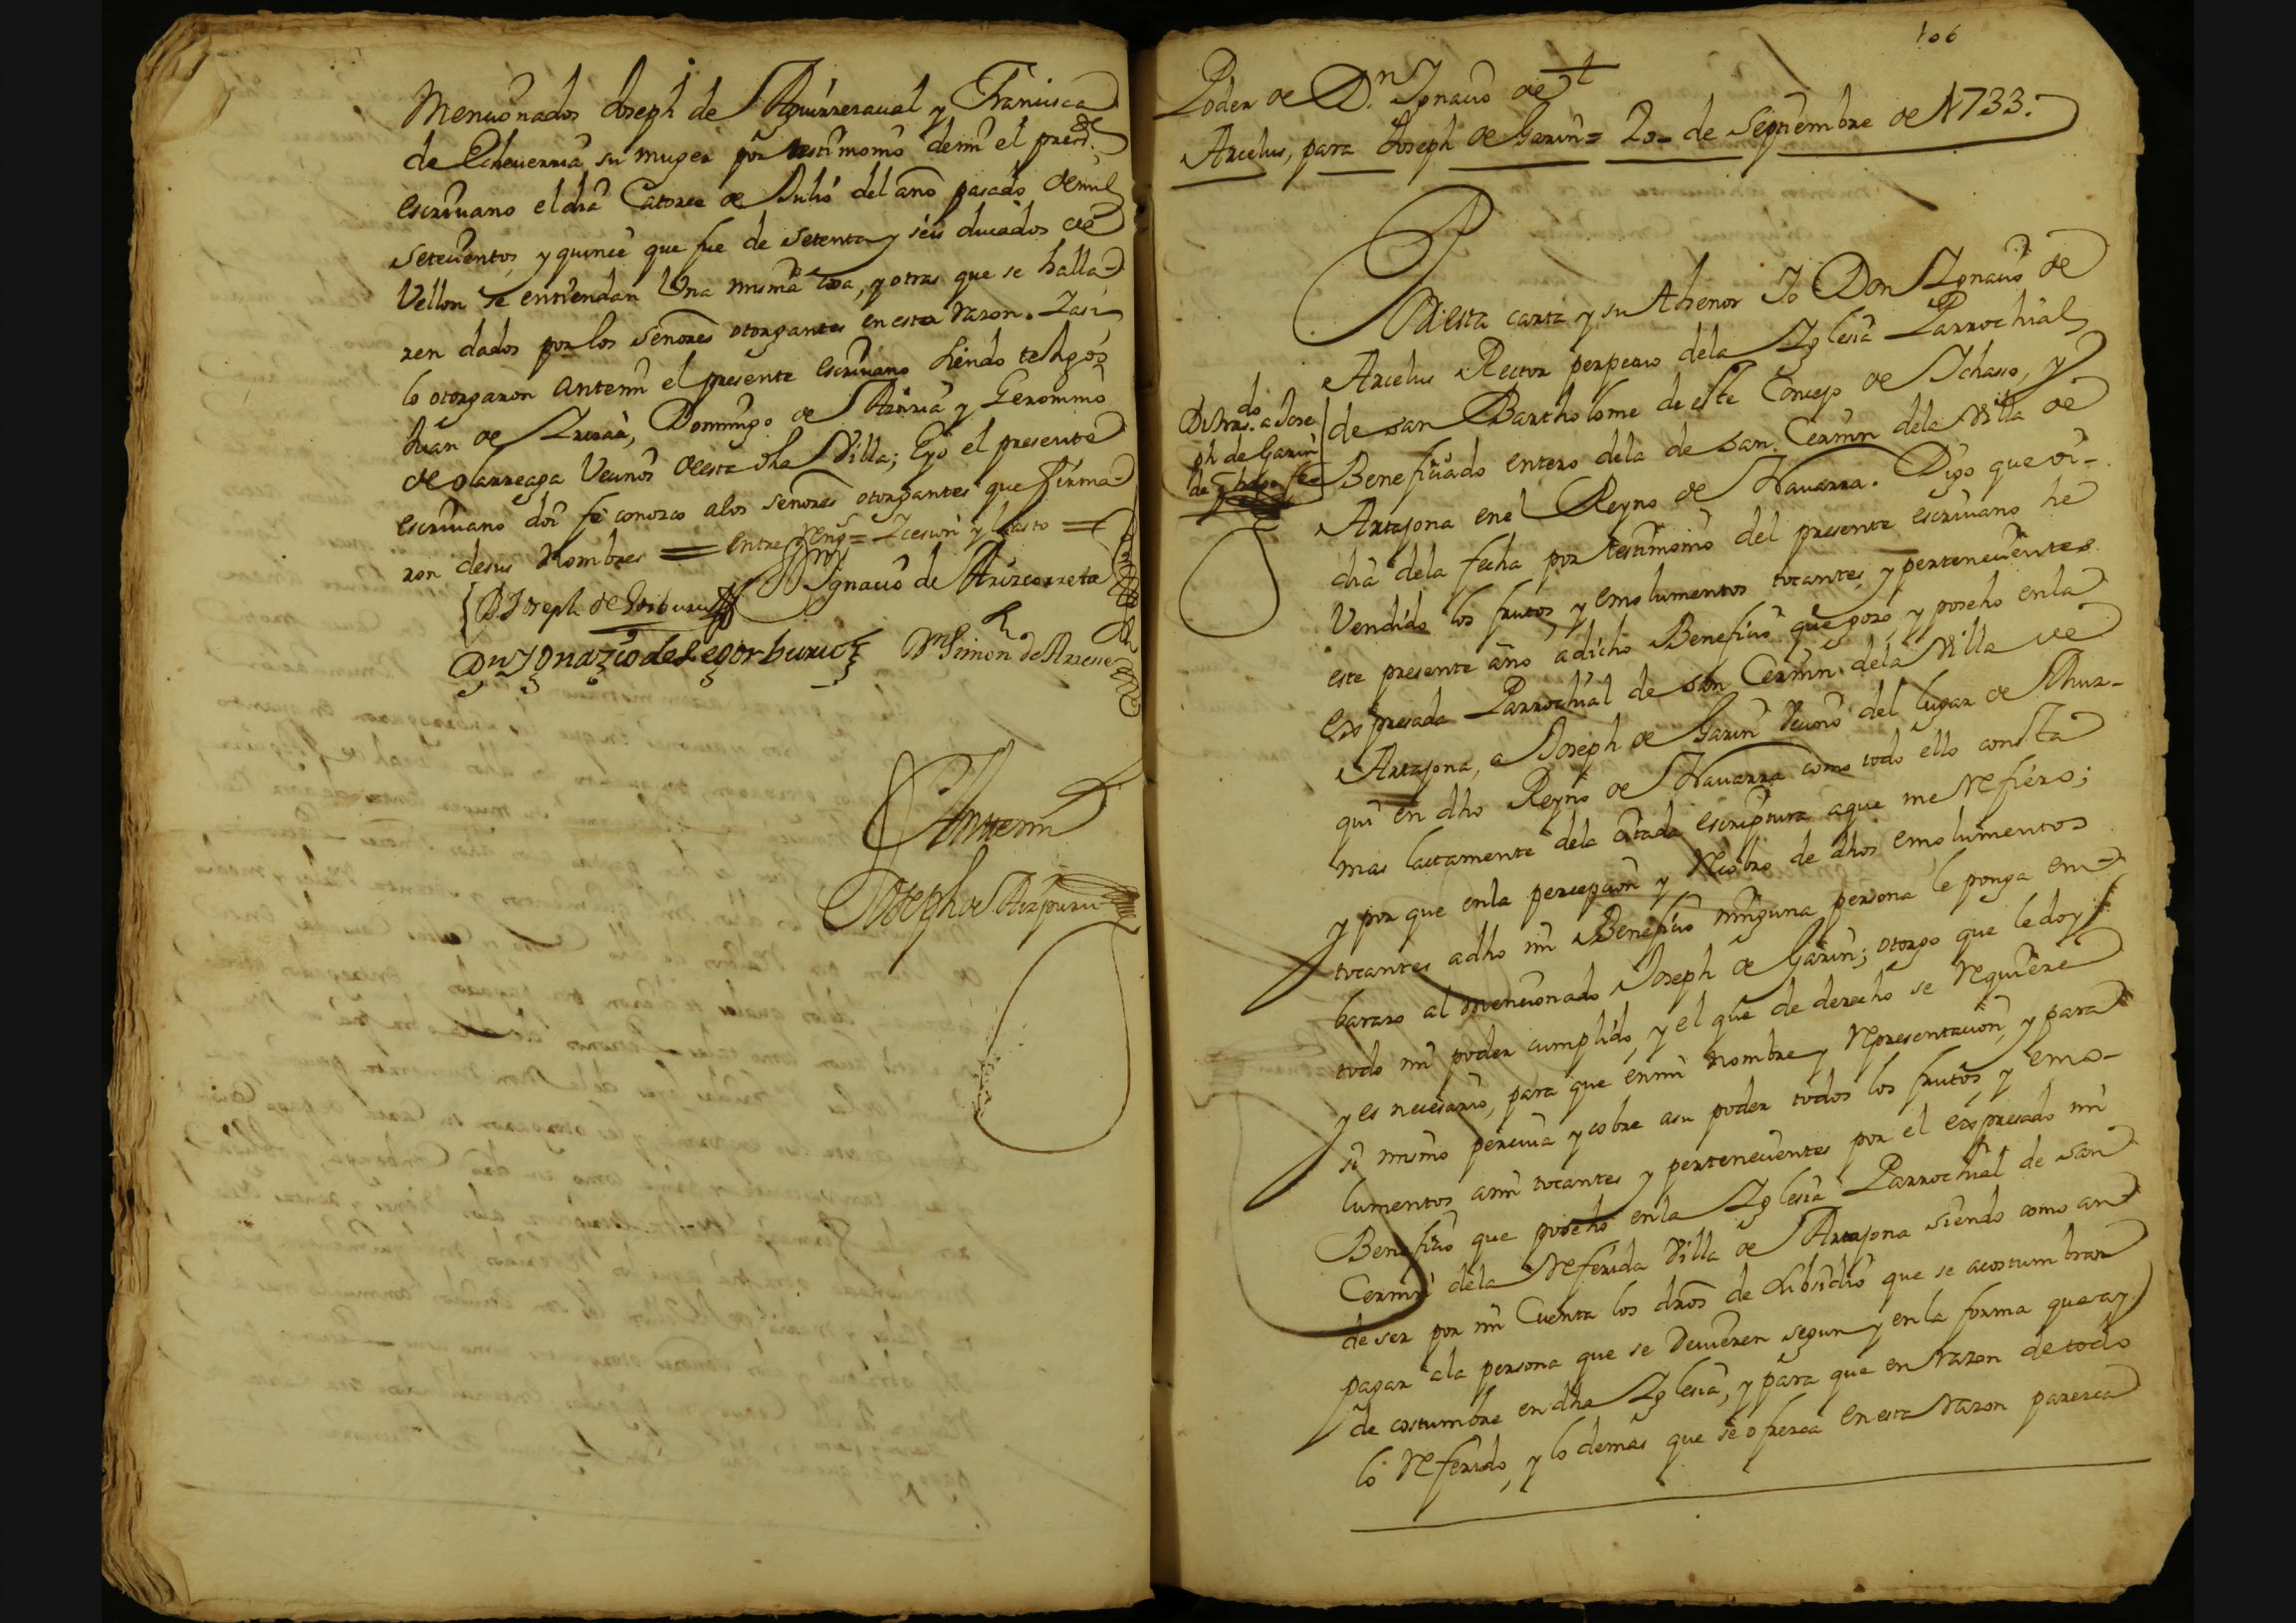 Mencionados Joseph de Aguirreraual y Francisca
de Echeuerria su muger por testimonio demi el pressᵗᵉ
escriuano eldia Catorce de Julio del año pasado demil
setecientos, y quince que fue de setenta y seis ducados de
Vellon se entiendan Una misma cosa, y otras que se halla-
ren dados por los señores otorgantes en esta razon. Y asi
lo otorgaron antemi el presente escriuano siendo testigos
Juan de, Domingo de y Geronimo
de olarreaga Vecinos desta dha Villa; Eyo el presente
escriuano doi fe conozco alos señores otorgantes que firma-
ron desus Nombres = entre Reng.ˢ = y =
D. Joseph de Dn Ignacio de Arizcorreta
Dn Ygnazio de Legorburu Dn Simon de
Antemi
Joseph de Aizpuru
106
Poder de D.ⁿ Ignacio de
Arcelus, para Joseph de Garin = 20 - de Septiembre de 1733.
Por esta carta y su thenor Yo Don Ignacio de
Arcelus Rector perpetuo dela Yglesia Parrochial
de san Bartholome de este Concejo de Ichasso, y
Beneficiado entero dela de san Cernin dela Villa de
Artajona enel Reyno de Nauarra. Digo que oi-
dia dela fecha por testimonio del presente escriuano he
Vendido los frutos, y emolumentos tocantes, y pertenecientes
este presente año adicho Beneficio que gozo, y poseho enla
expresada Parrochial de san Cernin dela Villa de
Artajona, a Joseph de Garin Vecino del lugar de Mur-
qui en dho Reyno de Nauarra como todo ello consta
mas lactamente dela citada escriptura aque me refiero;
y por que enla percepcion y recobro de dhos emolumentos
tocantes adho mi Beneficio ninguna persona le ponga em-
barazo al mencionado Joseph de Garin; otorgo que le doy
todo mi poder cumplido, y el que de derecho se requiere
y es necesario, para que enmi nombre y representacion, y para
si mismo perciua y cobre asu poder todos los frutos, y emo-
lumentos ami tocantes y pertenecientes por el expresado mi
Beneficio que poseho enla Yglesia Parrochial de san
Cernin dela referida Villa de Artajona siendo como an
de ser por mi Cuenta los dros de subsidio que se acostumbran
pagar ala persona que se deuieren segun y enla forma que ay
de costumbre en dha Yglesia, y para que en razon de todo
lo referido, y lo demas que se ofrezca en esta razon parezca
do
a Jose
ph de Garin
de fe